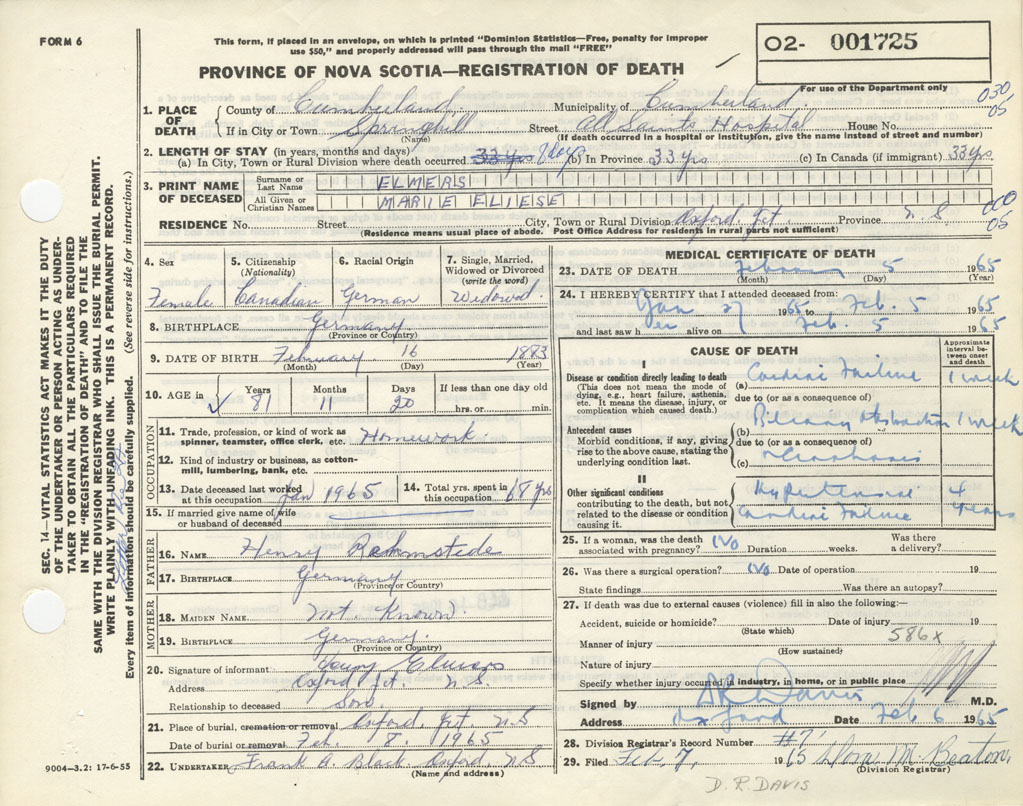 FORM 6
This form, if placed in an envelope, on which is printed "Dominion Statistics—Free, penalty for improper
use $50," and properly addressed will pass through the mail "FREE"
O2- 001725
For use of the Department only
PROVINCE OF NOVA SCOTIA—REGISTRATION OF DEATH
030
05
1. PLACE OF DEATH County of Cumberland Municipality of Cumberland
If in City or Town Springhill Street All Saints Hospital House No.
(Name) (If death occurred in a hospital or institution, give the name instead of street and number)
2. LENGTH OF STAY (in years, months and days)
(a) In City, Town or Rural Division where death occurred 33 yrs days (b) In Province 33 yrs (c) In Canada (if immigrant) 33 yrs
3. PRINT NAME OF DECEASED
Surname or Last Name ELMERS
All Given or Christian Names MARIE ELIESE
000
05
RESIDENCE No. Street City, Town or Rural Division Oxford Jct. Province N S
(Residence means usual place of abode. Post Office Address for residents in rural parts not sufficient)
4. Sex
Female
5. Citizenship
(Nationality)
Canadian
6. Racial Origin
German
7. Single, Married,
Widowed or Divorced
(write the word)
Widowed
8. BIRTHPLACE Germany
(Province or Country)
9. DATE OF BIRTH February 16 1883
(Month) (Day) (Year)
10. AGE in Years 81 Months 11 Days 20 If less than one day old
hrs. or min.
OCCUPATION
11. Trade, profession, or kind of work as
spinner, teamster, office clerk, etc. Homework
12. Kind of industry or business, as cotton-
mill, lumbering, bank, etc.
13. Date deceased last worked
at this occupation Jan 1965
14. Total yrs. spent in
this occupation 68 yrs
15. If married give name of wife
or husband of deceased
FATHER
16. NAME Henry
17. BIRTHPLACE Germany
(Province or Country)
MOTHER
18. MAIDEN NAME Not Known
19. BIRTHPLACE Germany
(Province or Country)
20. Signature of informant Elmers
Address Oxford Jct. N.S
Relationship to deceased Son
21. Place of burial, cremation or removal Oxford Jct N S
Date of burial or removal Feb. 8, 1965
22. UNDERTAKER Frank A. Black Oxford, N S
(Name and address)
MEDICAL CERTIFICATE OF DEATH
23. DATE OF DEATH February 5 1965
(Month) (Day) (Year)
24. I HEREBY CERTIFY that I attended deceased from:
Jan 27 1965 to Feb. 5 1965
and last saw her alive on Feb. 5 1965
CAUSE OF DEATH
Approximate
interval be-
tween onset
and death
I
Disease or condition directly leading to death
(This does not mean the mode of
dying, e.g., heart failure, asthenia,
etc. It means the disease, injury, or
complication which caused death.)
(a) Cardiac Failure 1 week
due to (or as a consequence of)
Antecedent causes
Morbid conditions, if any, giving
rise to the above cause, stating the
underlying condition last.
(b) Biliary obstruction 1 week
due to (or as a consequence of)
(c)
II
Other significant conditions
contributing to the death, but not
related to the disease or condition
causing it.
Hypertensive 4
Cardiac Failure years
25. If a woman, was the death
associated with pregnancy? No Duration weeks. Was there
a delivery?
26. Was there a surgical operation? No Date of operation 19
State findings Was there an autopsy?
27. If death was due to external causes (violence) fill in also the following:—
Accident, suicide or homicide? Date of injury 19
(State which)
586x
Manner of injury
(How sustained)
Nature of injury
Specify whether injury occurred in industry, in home, or in public place
Signed by D R Davis M.D.
Address Oxford Date Feb 6 1965
28. Division Registrar's Record Number #7
29. Filed Feb. 7, 1965 M. Beaton
(Division Registrar)
D. R. DAVIS
9004—3.2: 17-6-55
SEC. 14—VITAL STATISTICS ACT MAKES IT THE DUTY
OF THE UNDERTAKER OR PERSON ACTING AS UNDER-
TAKER TO OBTAIN ALL THE PARTICULARS REQUIRED
IN THE "REGISTRATION OF DEATH" AND TO FILE THE
SAME WITH THE DIVISION REGISTRAR WHO SHALL ISSUE THE BURIAL PERMIT.
WRITE PLAINLY WITH UNFADING INK. THIS IS A PERMANENT RECORD.
Every item of information should be carefully supplied. (See reverse side for instructions.)